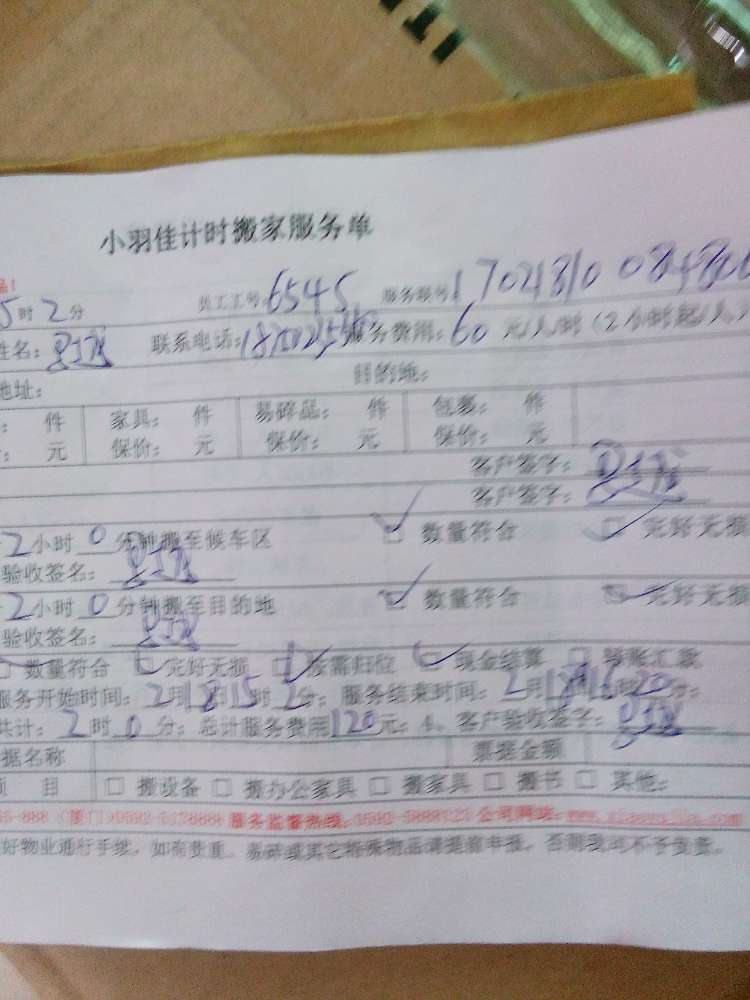 小羽佳计时搬家服务单
品!
5时2分 员工工号:6545 服务账号:
姓名: 联系电话: 服务费用:60元/人/时(2小时起/人)
地址: 目的地:
件 家具: 件 易碎品: 件 包裹: 件
元 保价: 元 保价: 元 保价: 元
客户签字:
客户签字:
2小时0分钟搬至候车区 数量符合 完好无损
验收签名:
2小时0分钟搬至目的地 数量符合 完好无损
验收签名:
数量符合 完好无损 按需归位 现金结算 转账汇款
服务开始时间:2月18日15时2分;服务结束时间:2月18日16时20分;
共计:2时0分;总计服务费用120元;4、客户验收签字:
据名称 票据金额
项 目 □ 搬设备 □ 搬办公家具 □ 搬家具 □ 搬书 □ 其他:
(厦门)0592- 服务监督热线:0592- 公司网站:
好物业通行手续,如有贵重、易碎或其它特殊物品请提前申报,否则我司不予负责。